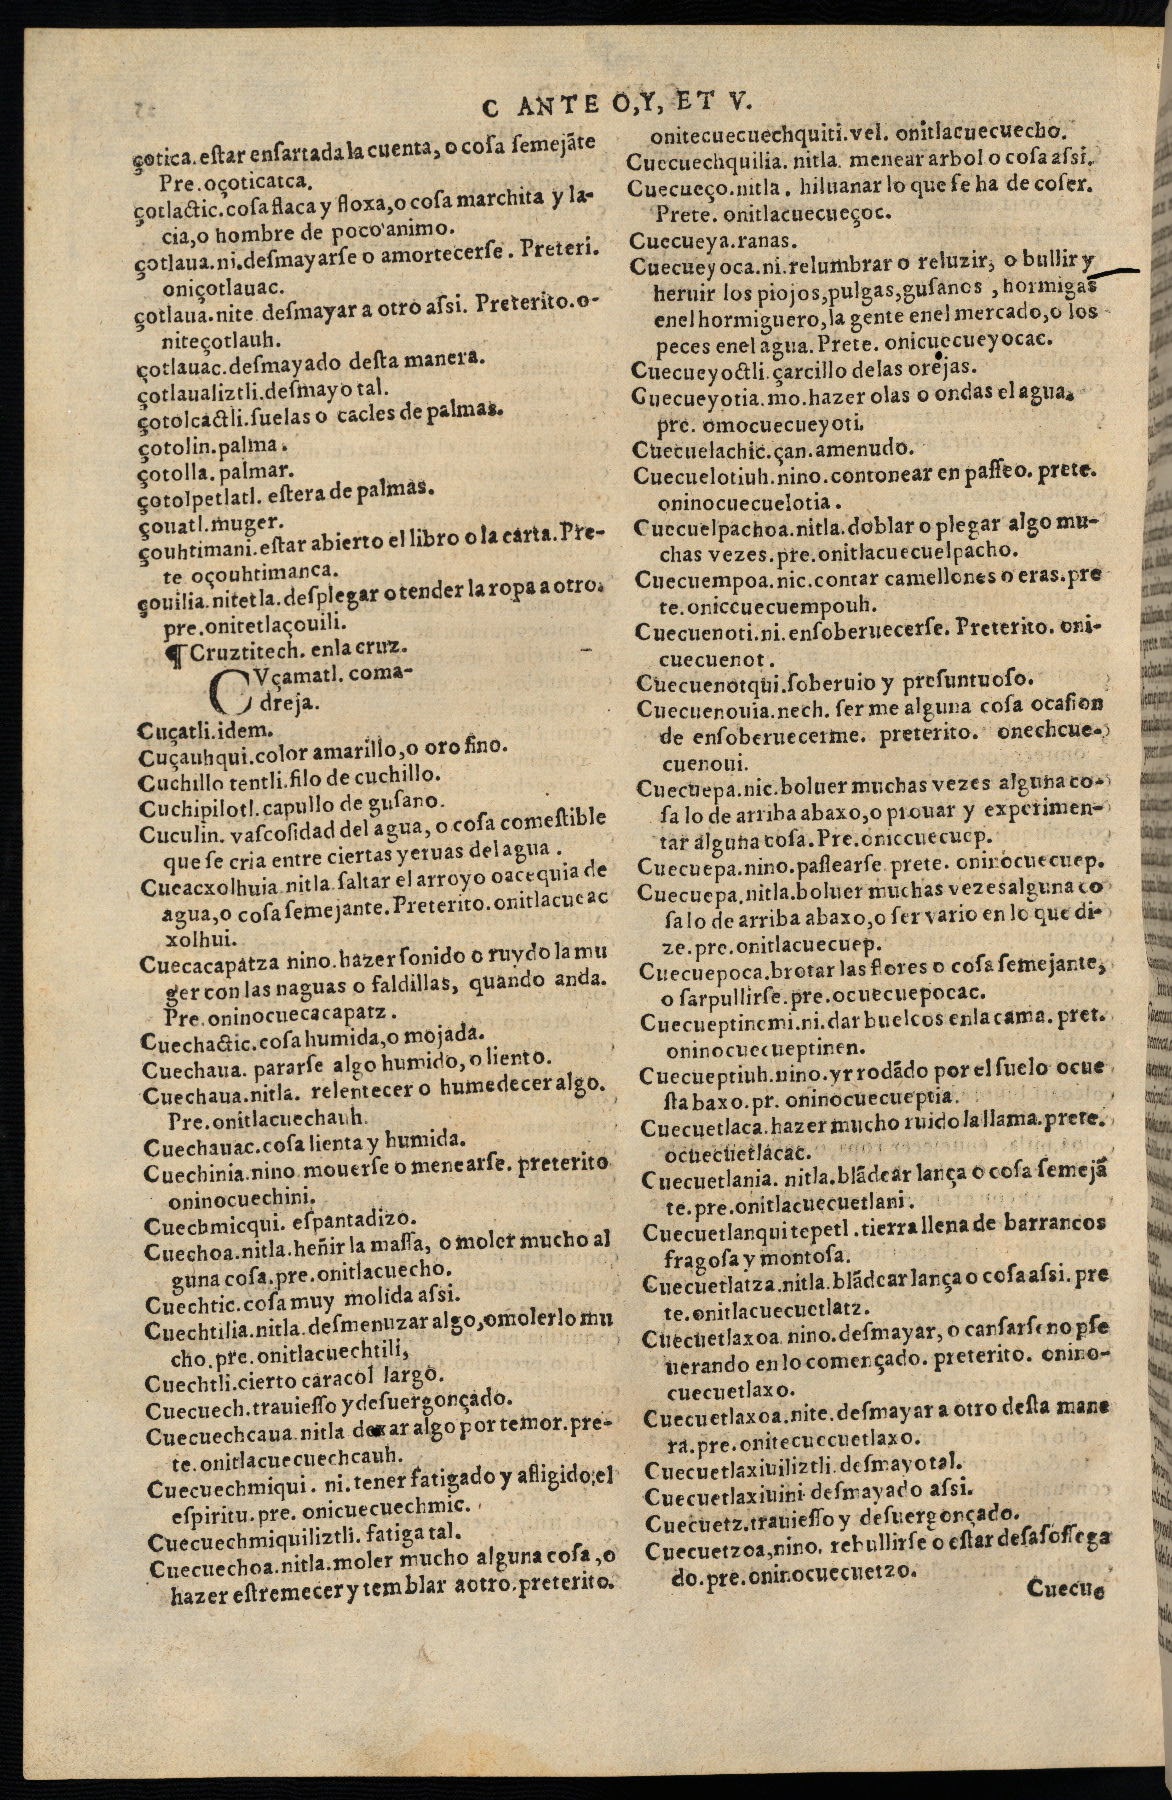 C ANTE O,Y, ET V.
çotica.eſtar enſartada la cuenta, o coſa ſemejãte
Pre.oçoticatca.
çotlactic.coſa flaca y floxa,o coſa marchita y la-
cia,o hombre de poco animo.
çotlaua.ni.deſmayarſe o amortecerſe. Preteri.
oniçotlauac.
çotlaua.nite deſmayar a otro aſsi. Preterito.o-
niteçotlauh.
çotlauac.deſmayado deſta manera.
çotlaualiztli.deſmayo tal.
çotolcactli.ſuelas o cacles de palmas.
çotolin.palma.
çotolla.palmar.
çotolpetlatl. eſtera de palmas.
çouatl.muger.
çouhtimani.eſtar abierto el libro o la carta.Pre-
te oçouhtimanca.
çouilia.nitetla.deſplegar o tender la ropa a otro.
pre.onitetlaçouili.
¶ Cruztitech. enla cruz.
CVçamatl. coma-
dreja.
Cuçatli.idem.
Cuçauhqui.color amarillo,o oro fino.
Cuchillo tentli.filo de cuchillo.
Cuchipilotl.capullo de guſano.
Cuculin. vaſcoſidad del agua, o coſa comeſtible
que ſe cria entre ciertas yeruas del agua.
Cueacxolhuia nitla.ſaltar el arroyo o acequia de
agua,o coſa ſemejante.Preterito.onitlacueac
xolhui.
Cuecacapatza nino.hazer ſonido o ruydo la mu
ger con las naguas o faldillas, quando anda.
Pre.oninocuecacapatz.
Cuechactic.coſa humida,o mojada.
Cuechaua. pararſe algo humido, o liento.
Cuechaua.nitla. relentecer o humedecer algo.
Pre.onitlacuechauh.
Cuechauac.coſa lienta y humida.
Cuechinia.nino mouerſe o menearſe. preterito
oninocuechini.
Cuechmicqui. eſpantadizo.
Cuechoa.nitla.heñir la maſſa, o moler mucho al
guna coſa.pre.onitlacuecho.
Cuechtic.coſa muy molida aſsi.
Cuechtilia.nitla.deſmenuzar algo,o molerlo mu
cho.pre.onitlacuechtili,
Cuechtli.cierto caracol largo.
Cuecuech.trauieſſo y deſuergonçado.
Cuecuechcaua.nitla dexar algo por temor.pre-
te.onitlacuecuechcauh.
Cuecuechmiqui. ni.tener fatigado y afligido,el
eſpiritu.pre. onicuecuechmic.
Cuecuechmiquiliztli.fatiga tal.
Cuecuechoa.nitla.moler mucho alguna coſa,o
hazer eſtremecer y temblar a otro.preterito.
onitecuecuechquiti.vel. onitlacuecuecho.
Cuecuechquilia. nitla. menear arbol o coſa aſsi.
Cuecueço.nitla. hiluanar lo que ſe ha de coſer.
Prete. onitlacuecueçoc.
Cuecueya.ranas.
Cuecueyoca.ni.relumbrar o reluzir, o bullir y
heruir los piojos,pulgas,guſanos, hormigas
enel hormiguero,la gente enel mercado,o los
peces enel agua.Prete. onicuecueyocac.
Cuecueyoctli.çarcillo delas orejas.
Cuecueyotia.mo.hazer olas o ondas el agua.
pre. omocuecueyoti.
Cuecuelachic.çan.amenudo.
Cuecuelotiuh.nino.contonear en paſſeo. prete.
oninocuecuelotia.
Cuecuelpachoa.nitla.doblar o plegar algo mu-
chas vezes.pre.onitlacuecuelpacho.
Cuecuempoa.nic.contar camellones o eras.pre
te.oniccuecuempouh.
Cuecuenoti.ni.enſoberuecerſe. Preterito. oni-
cuecuenot.
Cuecuenotqui.ſoberuio y preſuntuoſo.
Cuecuenouia.nech. ſer me alguna coſa ocaſion
de enſoberuecerme. preterito. onechcue-
cuenoui.
Cuecuepa.nic.boluer muchas vezes alguna co-
ſa lo de arriba abaxo,o prouar y experimen-
tar alguna coſa.Pre.oniccuecuep.
Cuecuepa.nino.paſſearſe.prete. oninocuecuep.
Cuecuepa.nitla.boluer muchas vezes alguna co
ſa lo de arriba abaxo,o ſer vario en lo que di-
ze.pre.onitlacuecuep.
Cuecuepoca.brotar las flores o coſa ſemejante,
o ſarpullirſe.pre.ocuecuepocac.
Cuecueptinemi.ni.dar buelcos enla cama. pret.
oninocuecueptinen.
Cuecueptiuh.nino.yr rodãdo por el ſuelo o cue
ſta baxo.pr. oninocuecueptia.
Cuecuetlaca.hazer mucho ruido la llama.prete.
ocuecuetlacac.
Cuecuetlania. nitla.blãdear lança o coſa ſemejã
te.pre.onitlacuecuetlani.
Cuecuetlanqui tepetl.tierra llena de barrancos
fragoſa y montoſa.
Cuecuetlatza.nitla.blãdear lança o coſa aſsi. pre
te.onitlacuecuetlatz.
Cuecuetlaxoa nino.deſmayar, o canſarſe no pſe
uerando en lo començado. preterito. onino-
cuecuetlaxo.
Cuecuetlaxoa.nite.deſmayar a otro deſta mane
ra.pre.onitecuecuetlaxo.
Cuecuetlaxiuiliztli.deſmayo tal.
Cuecuetlaxiuini deſmayado aſsi.
Cuecuetz.trauieſſo y deſuergonçado.
Cuecuetzoa,nino. rebullirſe o eſtar deſaſoſſega
do.pre.oninocuecuetzo.
Cuecue